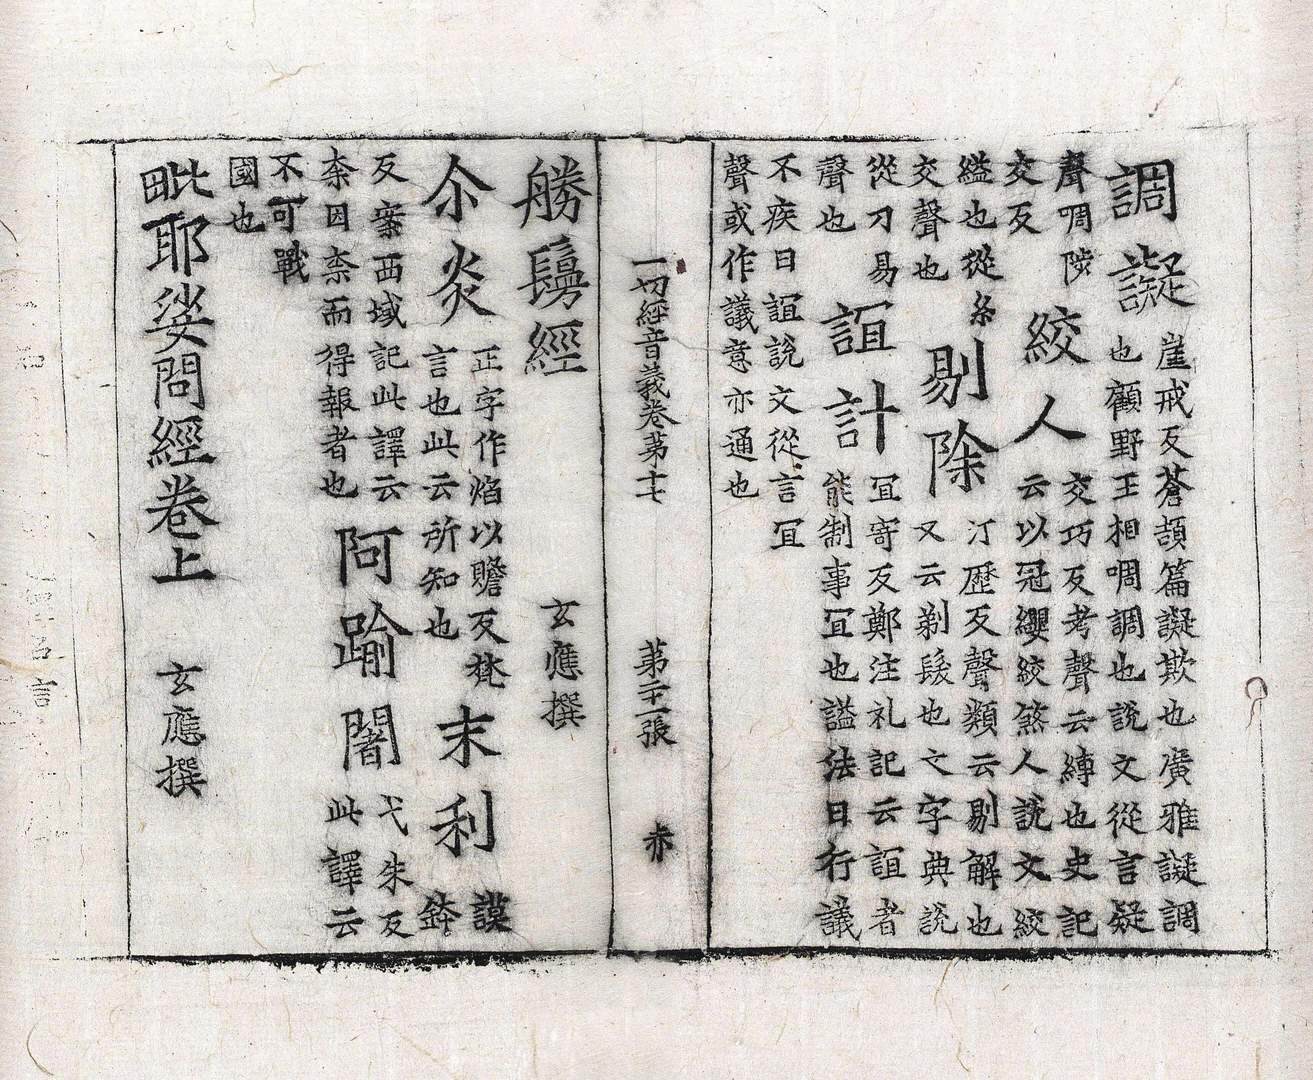 調譺
崖戒反蒼頡篇譺欺也廣雅譺調
也顧野王相啁調也說文從言疑
聲啁陟
交反
絞人
交巧反考聲云縛也史記
云以冠纓絞煞人說文絞
縊也從糸
交聲也
剔除
汀歷反聲類云剔解也
又云剃髲也文字典說
從刀易
聲也
誼計
冝寄反鄭注礼記云誼者
能制事冝也謚法曰行議
不疾曰誼說文從言冝
聲或作議意亦通也
一切經音義卷第十七 第二十一張
勝鬘經 玄應撰
尒炎
正字作焰以贍反梵
言也此云所知也
末利
謨
鉢
反案西域記此譯云
柰因柰而得報者也
阿踰闍
弋朱反
此譯云
不可戰
國也
毗耶娑問經卷上 玄應撰